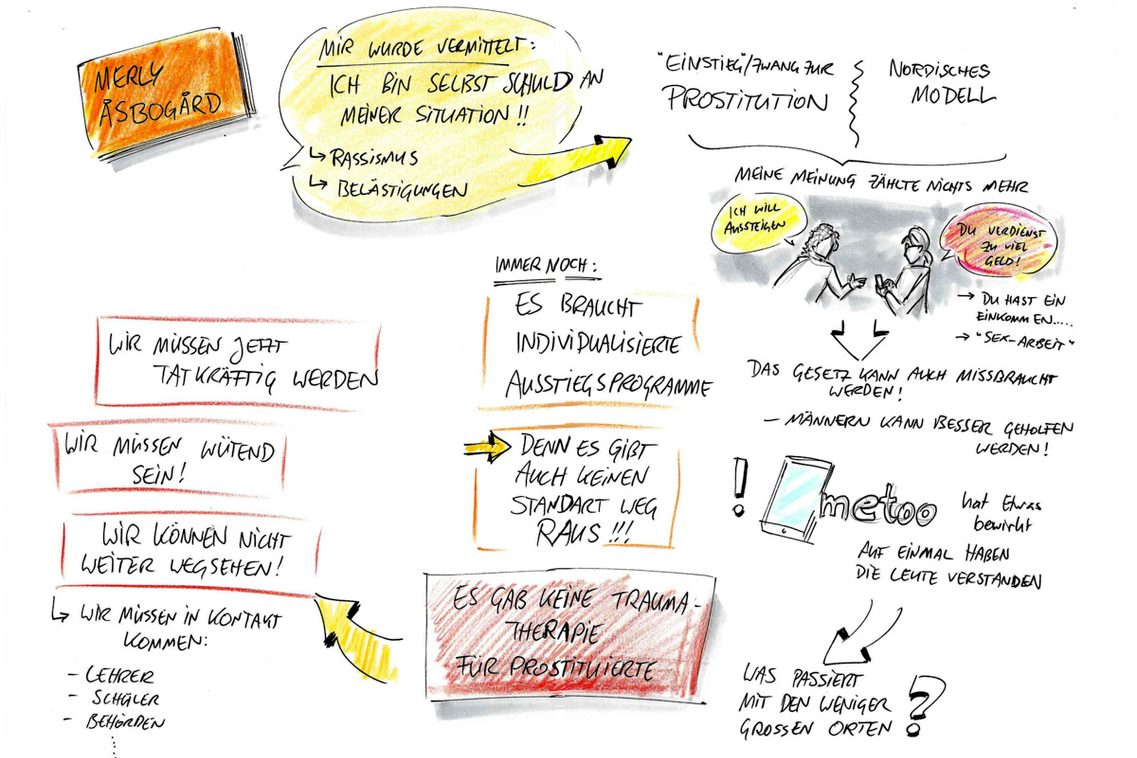 MERLY
ÅSBOGÅRD
MIR WURDE VERMITTELT:
ICH BIN SELBST SCHULD AN
MEINER SITUATION!!
↳ RASSISMUS
↳ BELÄSTIGUNGEN
"EINSTIEG"/ZWANG ZUR
PROSTITUTION
NORDISCHES
MODELL
MEINE MEINUNG ZÄHLTE NICHTS MEHR
ICH WILL
AUSSTEIGEN
DU VERDIENST
ZU VIEL
GELD!
→ DU HAST EIN
EINKOMMEN.....
→ "SEX-ARBEIT"
DAS GESETZ KANN AUCH MISSBRAUCHT
WERDEN!
– MÄNNERN KANN BESSER GEHOLFEN
WERDEN!
! metoo hat Etwas
bewirkt
AUF EINMAL HABEN
DIE LEUTE VERSTANDEN
WAS PASSIERT
MIT DEN WENIGER
GROSSEN ORTEN ?
IMMER NOCH:
ES BRAUCHT
INDIVIDUALISIERTE
AUSSTIEGSPROGRAMME
DENN ES GIBT
AUCH KEINEN
STANDART WEG
RAUS!!!
ES GAB KEINE TRAUMA-
THERAPIE
FÜR PROSTITUIERTE
WIR MÜSSEN JETZT
TATKRÄFTIG WERDEN
WIR MÜSSEN WÜTEND
SEIN!
WIR KÖNNEN NICHT
WEITER WEGSEHEN!
↳ WIR MÜSSEN IN KONTAKT
KOMMEN:
- LEHRER
- SCHÜLER
- BEHÖRDEN